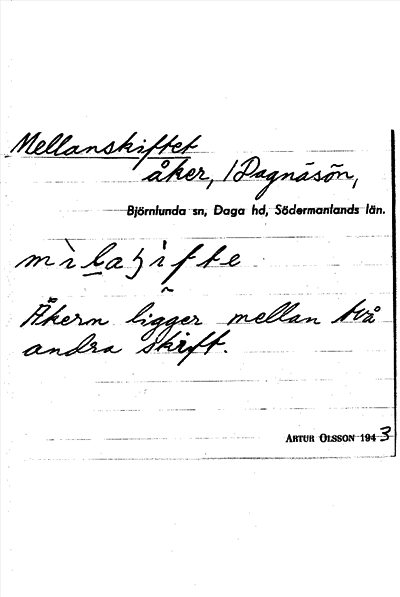 Mellanskiftet
åker, /Dagnäsön,
Björnlunda sn, Daga hd, Södermanlands län.
Åkern ligger mellan två
andra skift.
ARTUR OLSSON 1943